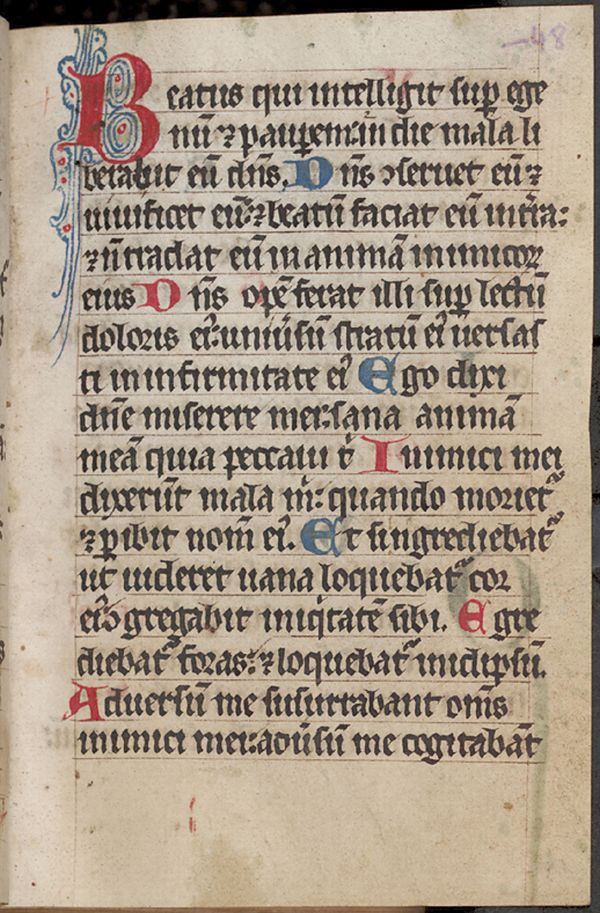 -48
Beatus qui intelligit sup ege
nū ⁊ pauꝑem: in die mala li
berabit eū dn̄s. Dn̄s ↄseruet eū ⁊
uiuificet eū: ⁊ beatū faciat eū in tr̄a:
⁊ n̄ tradat eū in animā inimicoꝝ
eius Dn̄s opē ferat illi suꝑ lectū
doloris eiꝰ: uniūsū stratū eiꝰ ūersas
ti in infirmitate eiꝰ Ego dixi
dn̄e miserere mei: sana animā
meā quia peccaui t̄ Inimici mei
dixerūt mala m̄: quando morietᷣ
⁊ ꝑibit nom̄ eiꝰ. Et si ingrediebatᷣ
ut uideret uana loquebatᷣ cor
eiꝰ ↄgregabit iniqͥtatē sibi. Egre
diebatᷣ foras: ⁊ loquebatᷣ in idip̄sū.
Aduersū me susurrabant om̄s
inimici mei: aduūsū me cogitabāt